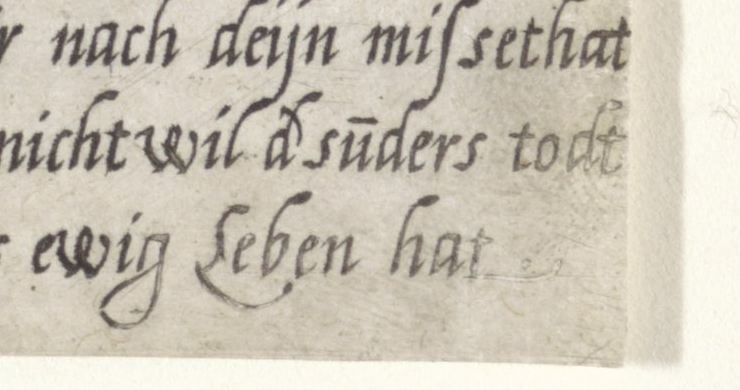 nach deÿn miſsethat
nicht wil d sūders todt
ewig Leben hat